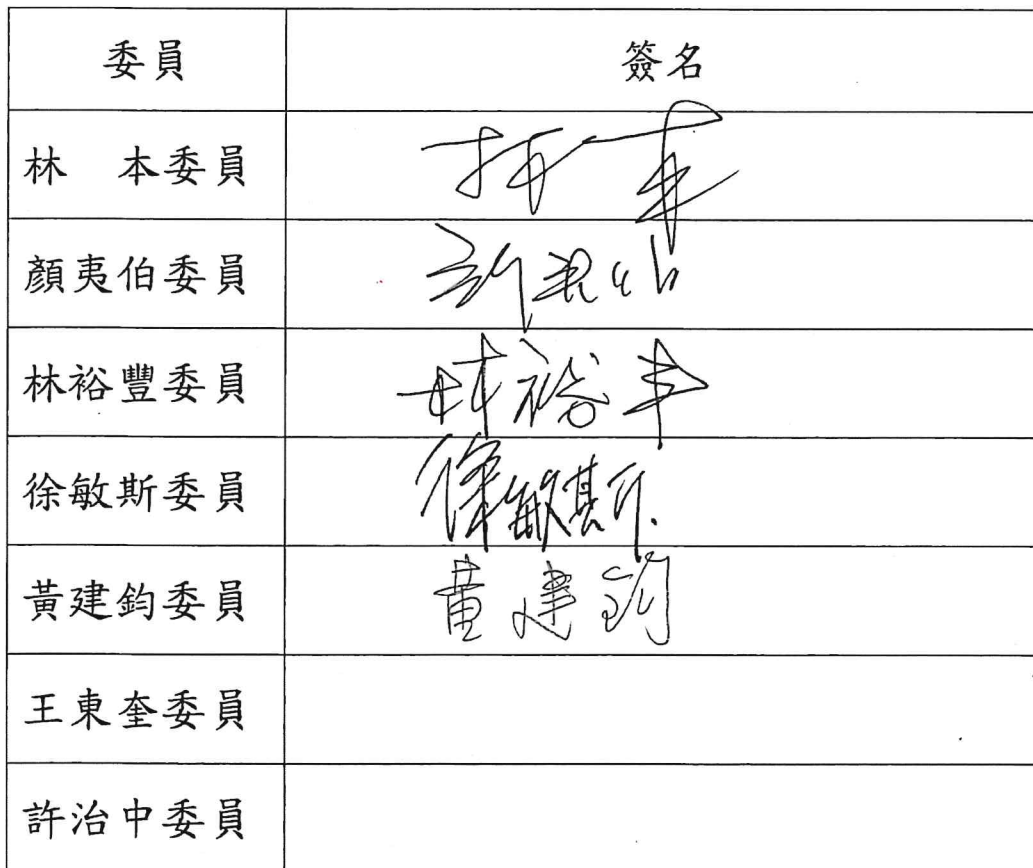 委員 簽名
林 本委員 林本
顏夷伯委員
林裕豐委員 林裕丰
徐敏斯委員 徐敏斯
黃建鈞委員 黃建鈞
王東奎委員
許治中委員